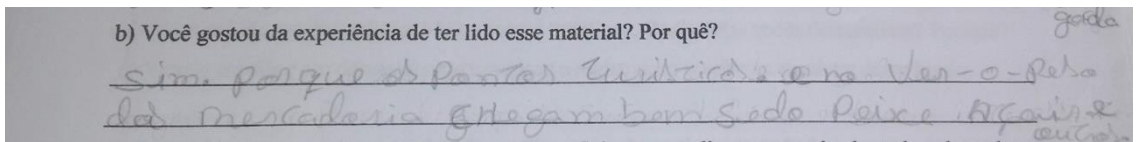 gorda
b) Você gostou da experiência de ter lido esse material? Por quê?
Sim. Porque os Pontos turisticos e no Ver-o-Peso
das mercadoria chegam bem sedo Peixe Açai e
outros.